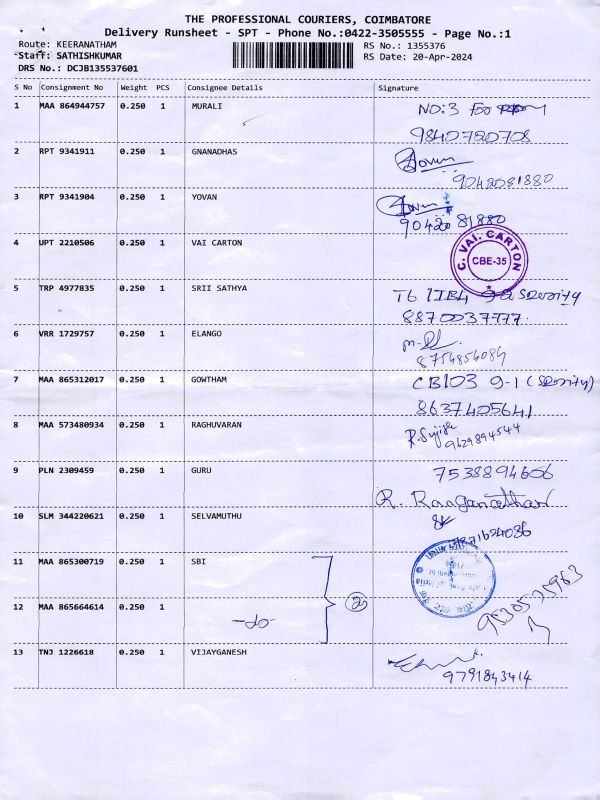 THE PROFESSIONAL COURIERS, COIMBATORE
Delivery Runsheet - SPT - Phone No.:0422-3505555 - Page No.:1
Route: KEERANATHAM RS No.: 1355376
Staff: SATHISHKUMAR RS Date: 20-Apr-2024
DRS No.: DCJB135537601
S No Consignment No Weight PCS Consignee Details Signature
1 MAA 864944757 0.250 1 MURALI NO:3
9840780708
2 RPT 9341911 0.250 1 GNANADHAS
9042081880
3 RPT 9341904 0.250 1 YOVAN
9042081880
4 UPT 2210506 0.250 1 VAI CARTON C. VAI. CARTON
CBE-35
5 TRP 4977835 0.250 1 SRII SATHYA
8870037777
6 VRR 1729757 0.250 1 ELANGO
8754854084
7 MAA 865312017 0.250 1 GOWTHAM CB103 9-1
8637405641
8 MAA 573480934 0.250 1 RAGHUVARAN
9629894544
9 PLN 2309459 0.250 1 GURU 7538894606
R. Raaganathan
10 SLM 344220621 0.250 1 SELVAMUTHU
11 MAA 865300719 0.250 1 SBI
12 MAA 865664614 0.250 1 -do- 2
13 TNJ 1226618 0.250 1 VIJAYGANESH
9791843414